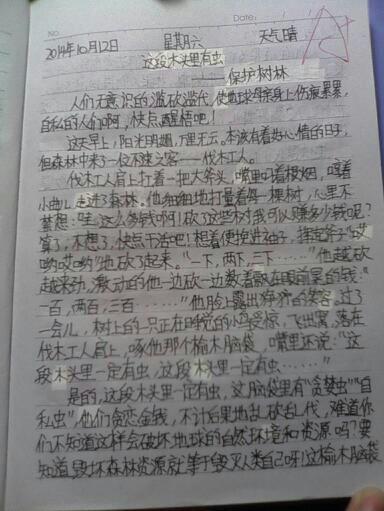 No. Date:
2014年10月12日 星期六 天气晴
这段木头里有虫
——保护树林
人们无意识的滥砍滥伐,使地球母亲身上伤痕累累,
自私的人们啊,快点醒悟吧!
这天早上,阳光明媚,万里无云。本该有着好心情的日子,
但森林中来了一位不速之客——伐木工人。
伐木工人肩上扛着一把大斧头,嘴里叼着根烟,唱着
小曲儿走进了森林。他细细地打量着每一棵树,心里不
禁想:哇,这么多钱啊!砍了这些树我可以赚多少钱呢?
算了,不想了,快点干活吧!想着便挽进袖子,挥起斧子“哎
哟哎哟”地砍了起来。“一下,两下,三下……”他越砍
越来劲,激动的他一边砍一边数着飘在眼前的钱:“一
百,两百,三百………”他脸上露出狰狞的笑容,过了
一会儿,树上的一只正在睡觉的小鸟受惊,飞出窝,落在
伐木工人肩上,啄他那个榆木脑袋,嘴里还说:“这
段木头里一定有虫,这段木头里一定有虫………”
是的,这段木头里一定有虫,这脑袋里有“贪婪虫”“自
私虫”,他们贪恋金钱,不计后果地乱砍乱伐,难道你
们不知道这样会破坏地球的自然环境和资源吗?要
知道,毁坏森林资源就等于毁灭人类自己呀!这榆木脑袋